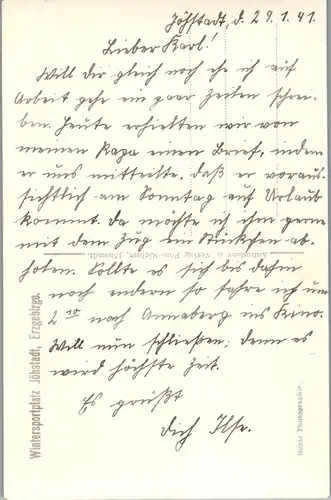 Jöhstadt, d. 29.1.41.
Lieber Karl!
Will dir gleich noch ehe ich auf
Arbeit gehe ein paar Zeilen schrei-
ben. Heute erhielten wir von
meinen Papa einen Brief, indem
er uns mitteilte. daß er voraus-
sichtlich am Sonntag auf Urlaub
kommt. Da möchte ich ihm gerne
mit dem Zug ein Stückchen ab-
holen. Sollte es sich bis dahin
noch endern so fahre ich um
2 10 nach Annaberg ins Kino.
Will nun schließen, denn es
wird höchste Zeit.
Es grüßt
Dich Ilse.
Wintersportplatz Jöhstadt, Erzgebirge.
Aufnahme u. Verlag Foto-Richter, Jöhstadt
Echte Photographie.